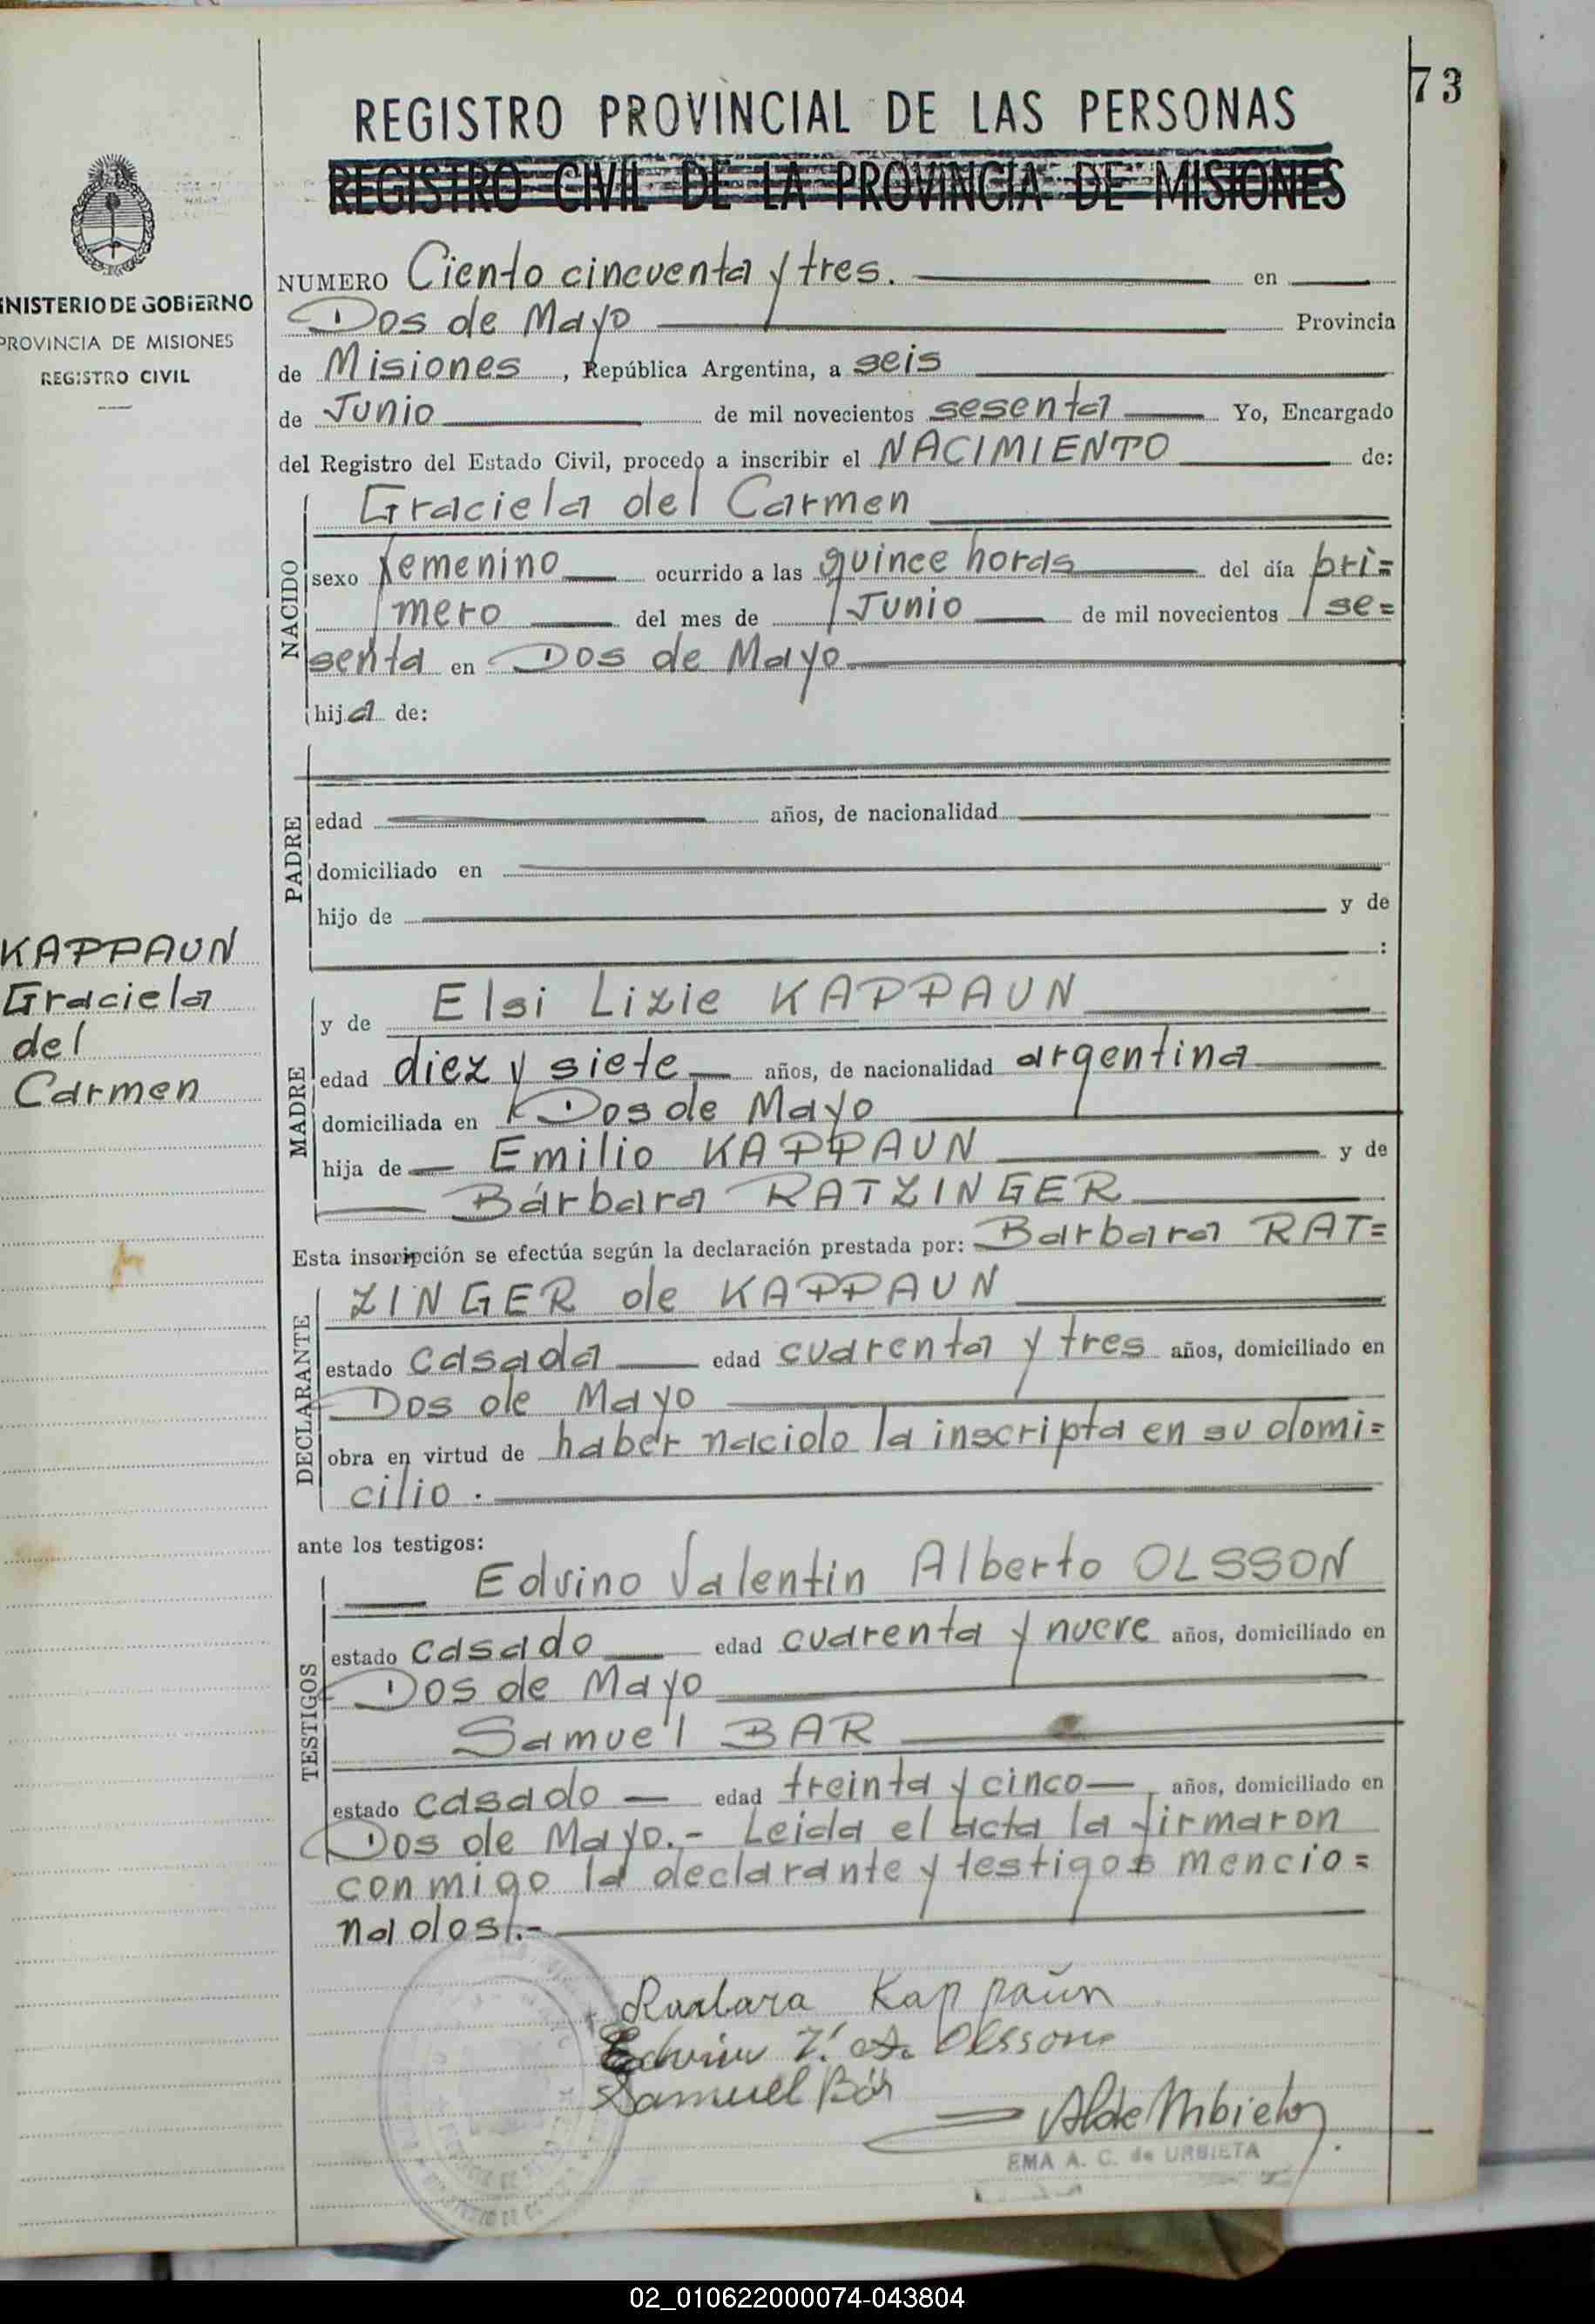 73
REGISTRO PROVINCIAL DE LAS PERSONAS
REGISTRO CIVIL DE LA PROVINCIA DE MISIONES
INISTERIO DE GOBIERNO
PROVINCIA DE MISIONES
REGISTRO CIVIL
NUMERO Ciento cincuenta y tres. en
Dos de Mayo Provincia
de Misiones , República Argentina, a seis
de Junio de mil novecientos sesenta Yo, Encargado
del Registro del Estado Civil, procedo a inscribir el NACIMIENTO de:
NACIDO
Graciela del Carmen
sexo femenino ocurrido a las quince horas del día pri=
mero del mes de Junio de mil novecientos se=
senta en Dos de Mayo
hija de:
PADRE
edad años, de nacionalidad
domiciliado en
hijo de y de
:
KAPPAUN
Graciela
del
Carmen
MADRE
y de Elsi Lizie KAPPAUN
edad diez y siete años, de nacionalidad argentina
domiciliada en Dos de Mayo
hija de Emilio KAPPAUN y de
Bárbara RATZINGER
Esta inscripción se efectúa según la declaración prestada por: Barbara RAT=
DECLARANTE
ZINGER de KAPPAUN
estado casada edad cuarenta y tres años, domiciliado en
Dos de Mayo
obra en virtud de haber nacido la inscripta en su domi=
cilio.
ante los testigos:
TESTIGOS
Edvino Valentin Alberto OLSSON
estado casado edad cuarenta y nueve años, domiciliado en
Dos de Mayo
Samuel BAR
estado casado edad treinta y cinco años, domiciliado en
Dos de Mayo.- Leida el acta la firmaron
conmigo la declarante y testigos mencio=
nados.-
Barbara Kappaun
Edvino V. A. Olsson
Samuel Bár
EMA A. C. de URBIETA
02_010622000074-043804